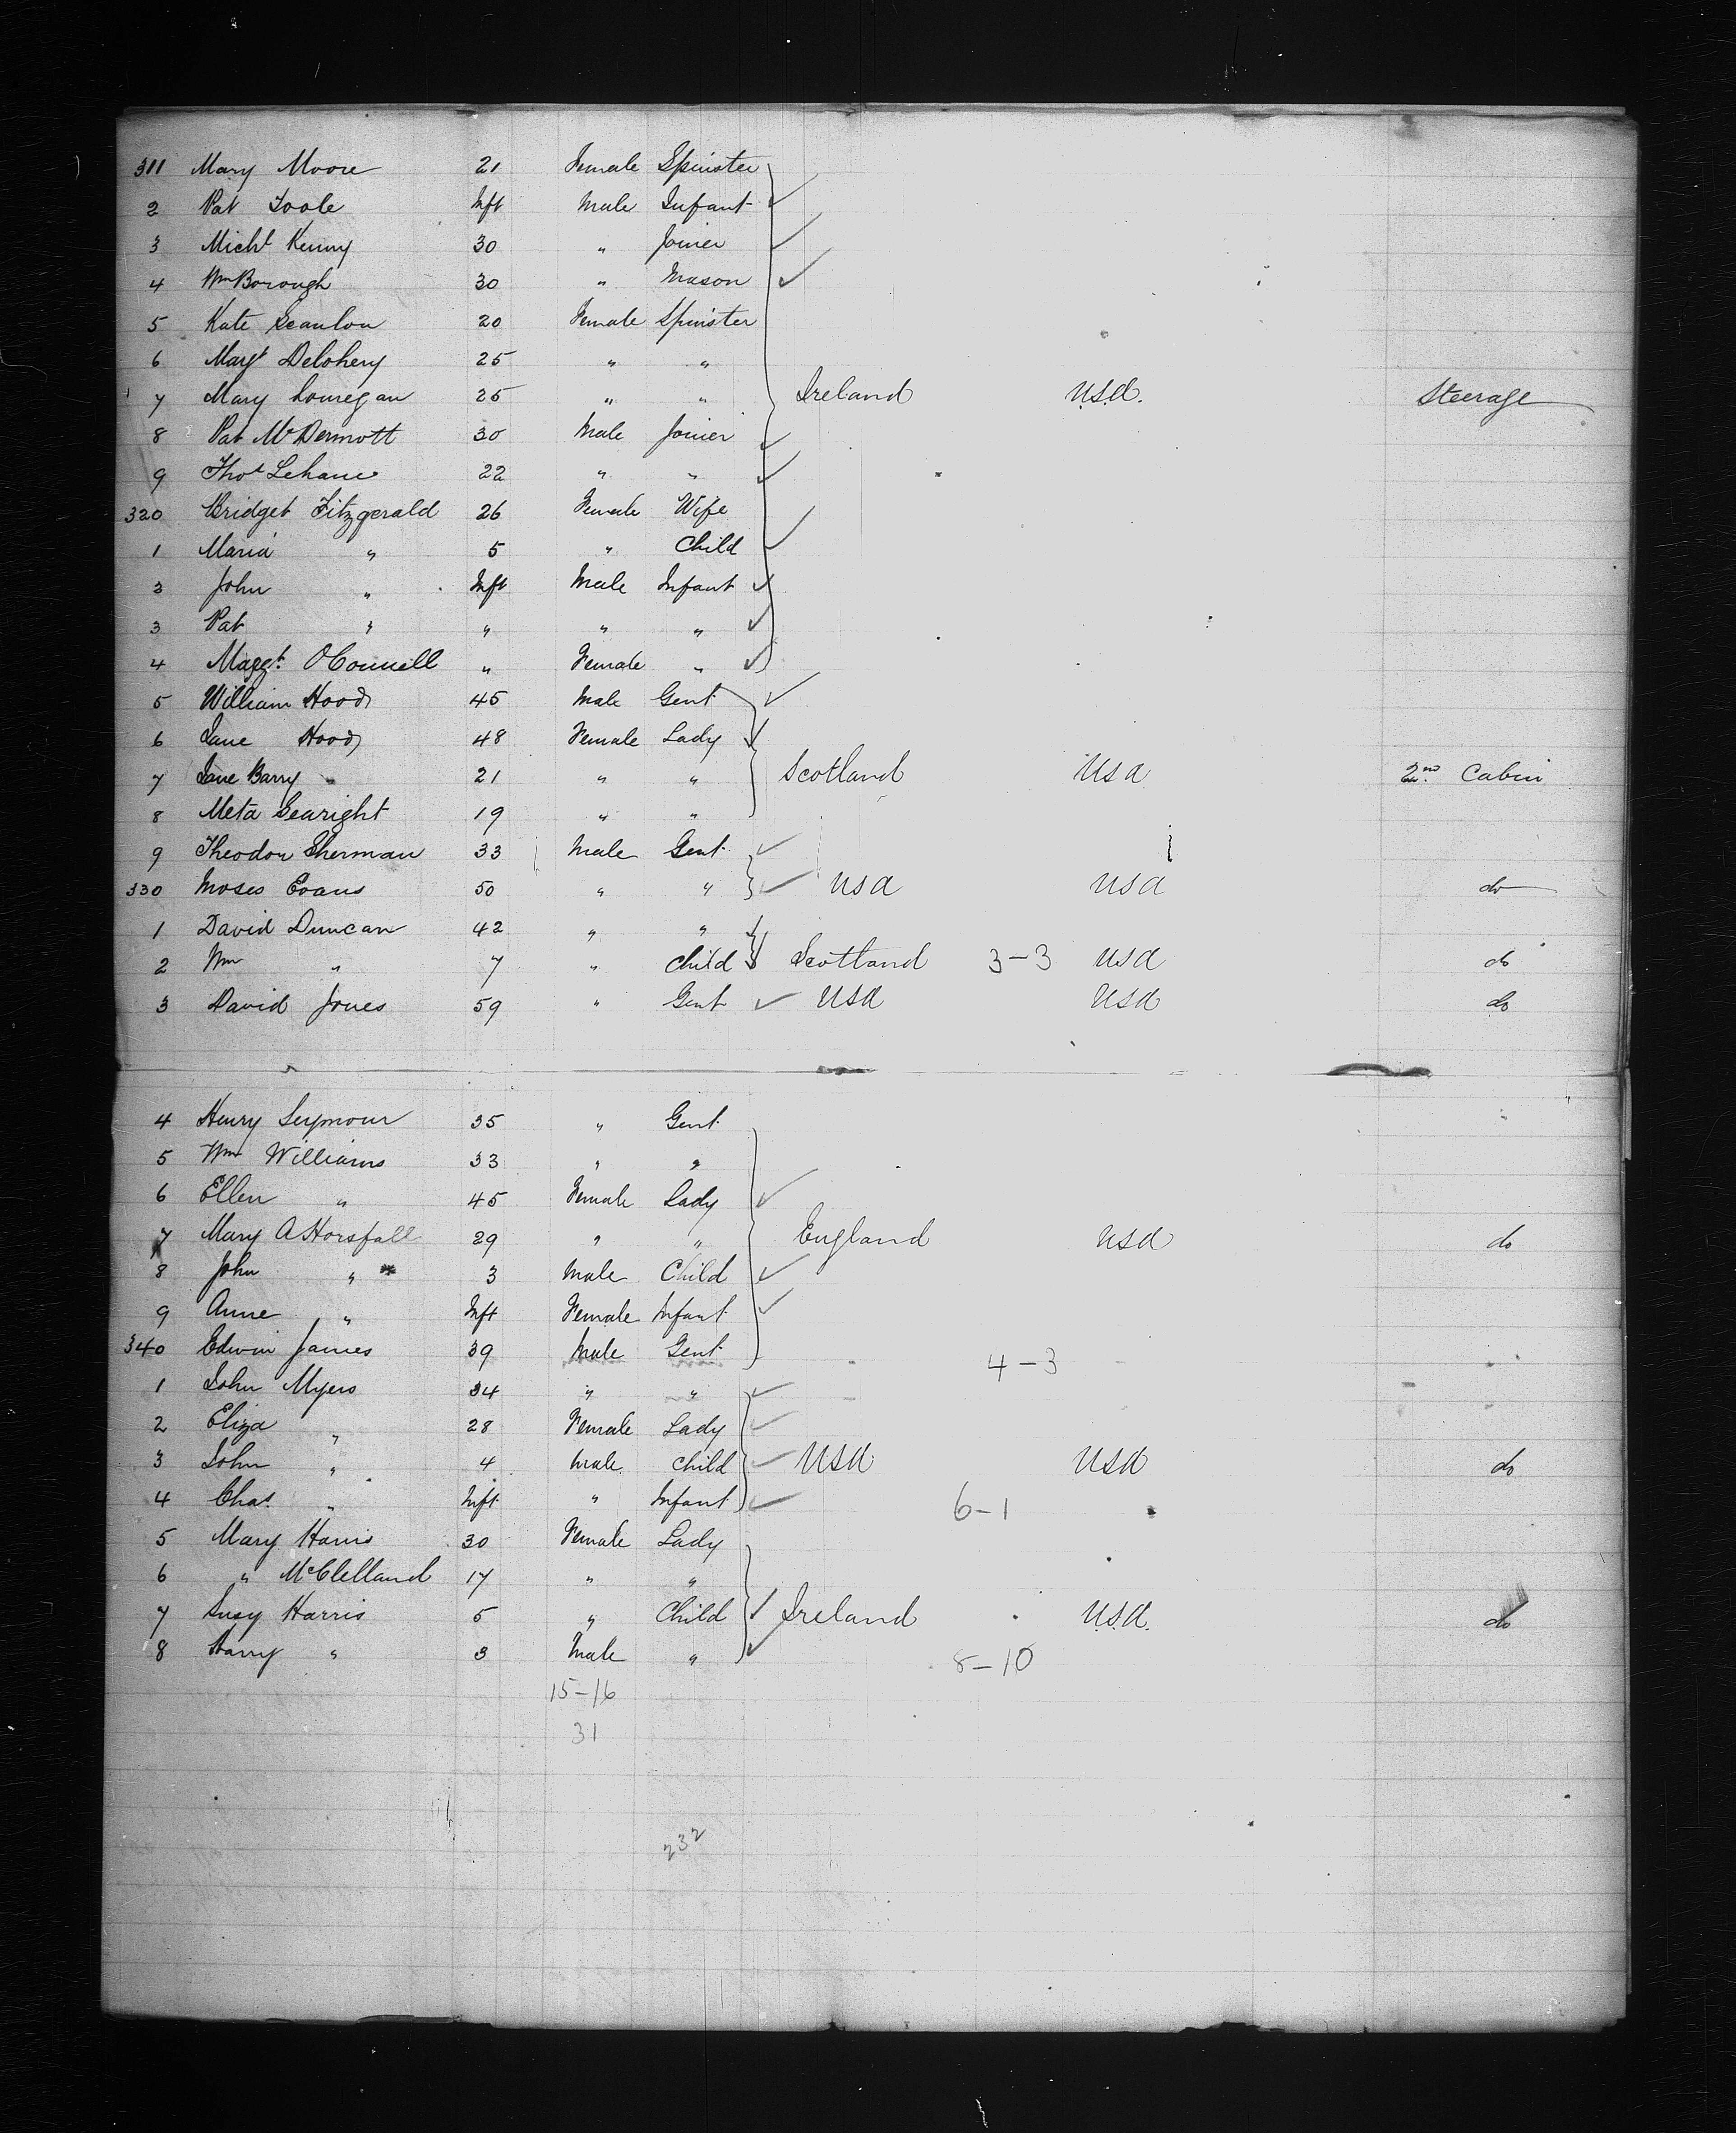 311 Mary Moore 21 Female Spinster
2 Pat Toole Inft Male Infant
3 Michl Kenny 30 " Joiner
4 Wm Borough 30 " Mason
5 Kate Scanlon 20 Female Spinster
6 Margt Delohery 25 " "
7 Mary Lonregan 25 " " Ireland U.S.A. Steerage
8 Pat McDermott 30 Male Joiner
9 Thos Lehane 22 " "
320 Bridget Fitzgerald 26 Female Wife
1 Maria " 5 " Child
2 John " Inft Male Infant
3 Pat " " " "
4 Margt. OConnell " Female "
5 William Hood 45 Male Gent
6 Jane Hood 48 Female Lady
7 Jane Barry 21 " " Scotland USA 2nd Cabin
8 Meta Searight 19 " "
9 Theodore Sherman 33 Male Gent
330 Moses Evans 50 " " USA USA do
1 David Duncan 42 " "
2 Wm " 7 " Child Scotland 3-3 USA do
3 David Jones 59 " Gent USA USA do
4 Henry Seymour 35 " Gent
5 Wm Williams 33 " "
6 Ellen " 45 Female Lady
7 Mary A Horsfall 29 " " England USA do
8 John " 3 Male Child
9 Anne " Inft Female Infant
340 Edwin James 39 Male Gent 4-3
1 John Myers 34 " "
2 Eliza " 28 Female Lady
3 John " 4 Male Child USA USA do
4 Chas. " Inft " Infant 6-1
5 Mary Harris 30 Female Lady
6 " McClelland 17 " "
7 Susy Harris 5 " Child Ireland U.S.A. do
8 Harry " 3 Male " 8-10
15-16
31
232